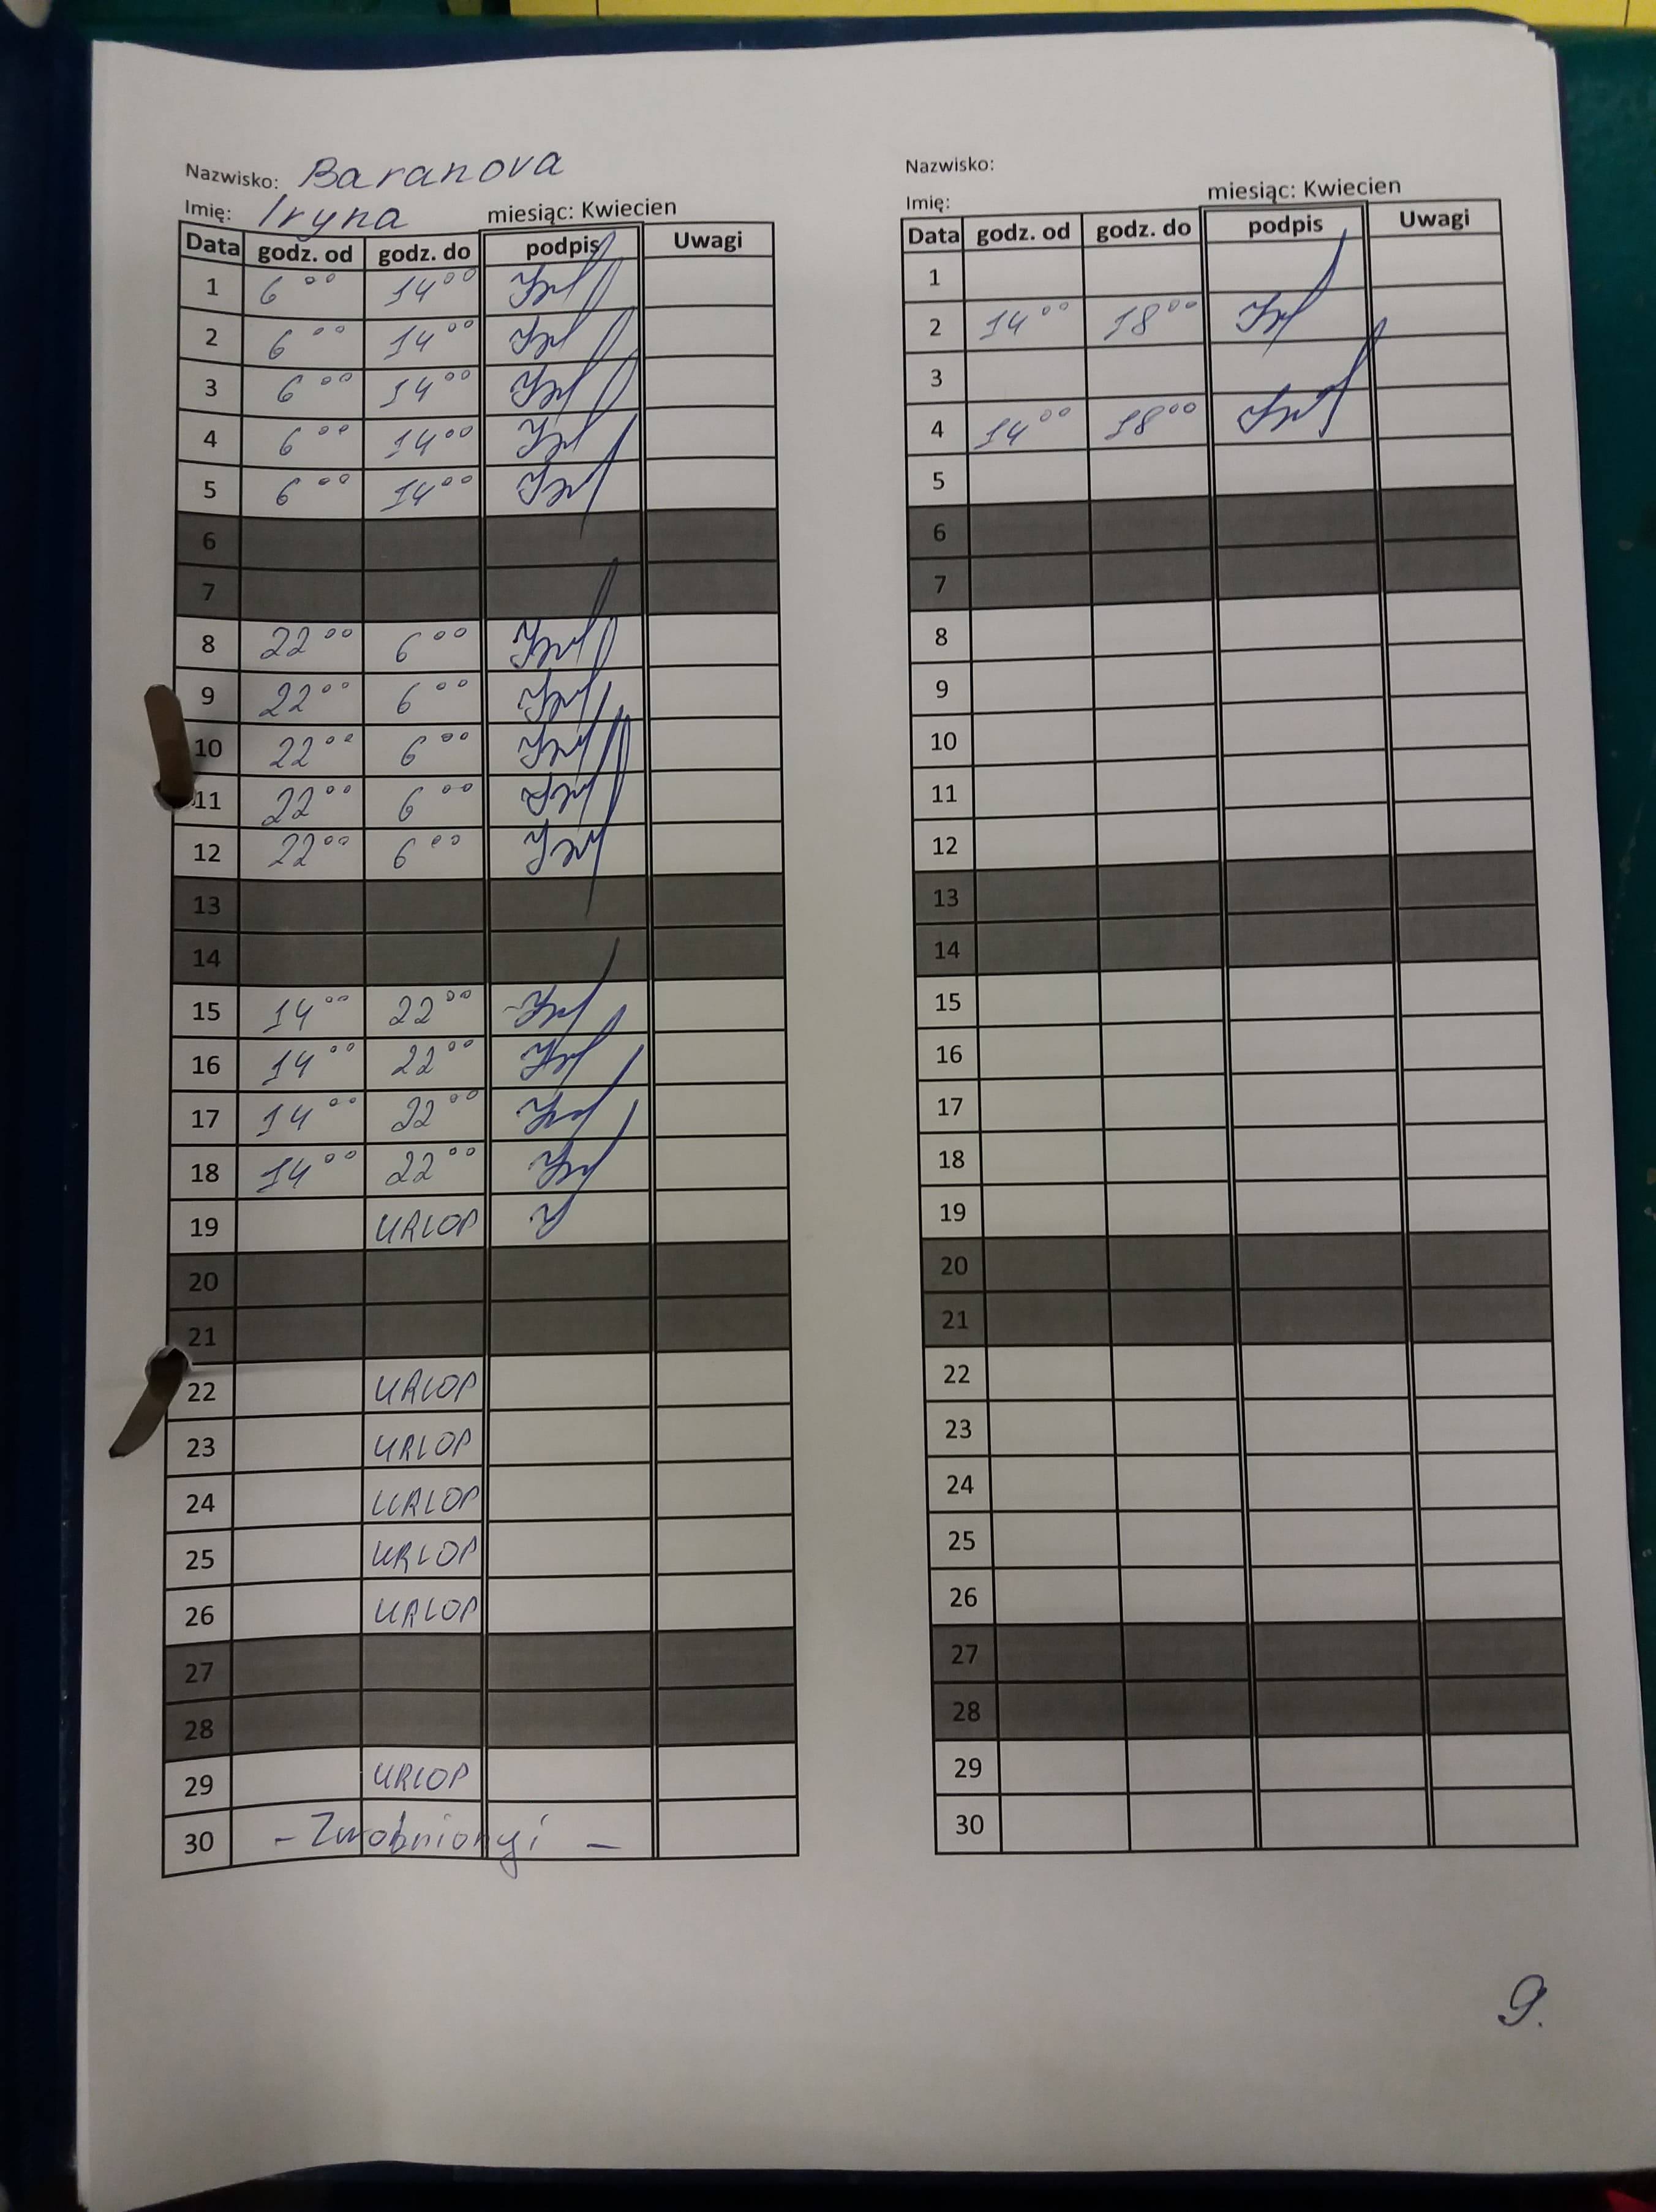 Nazwisko: Baranova
Imię: Iryna miesiąc: Kwiecien
Data godz. od godz. do podpis Uwagi
1 6 00 14 00
2 6 00 14 00
3 6 00 14 00
4 6 00 14 00
5 6 00 14 00
6
7
8 22 00 6 00
9 22 00 6 00
10 22 00 6 00
11 22 00 6 00
12 22 00 6 00
13
14
15 14 00 22 00
16 14 00 22 00
17 14 00 22 00
18 14 00 22 00
19 URLOP
20
21
22 URLOP
23 URLOP
24 URLOP
25 URLOP
26 URLOP
27
28
29 URLOP
30
Nazwisko:
Imię: miesiąc: Kwiecien
Data godz. od godz. do podpis Uwagi
1
2 14 00 18 00
3
4 14 00 18 00
5
6
7
8
9
10
11
12
13
14
15
16
17
18
19
20
21
22
23
24
25
26
27
28
29
30
9.